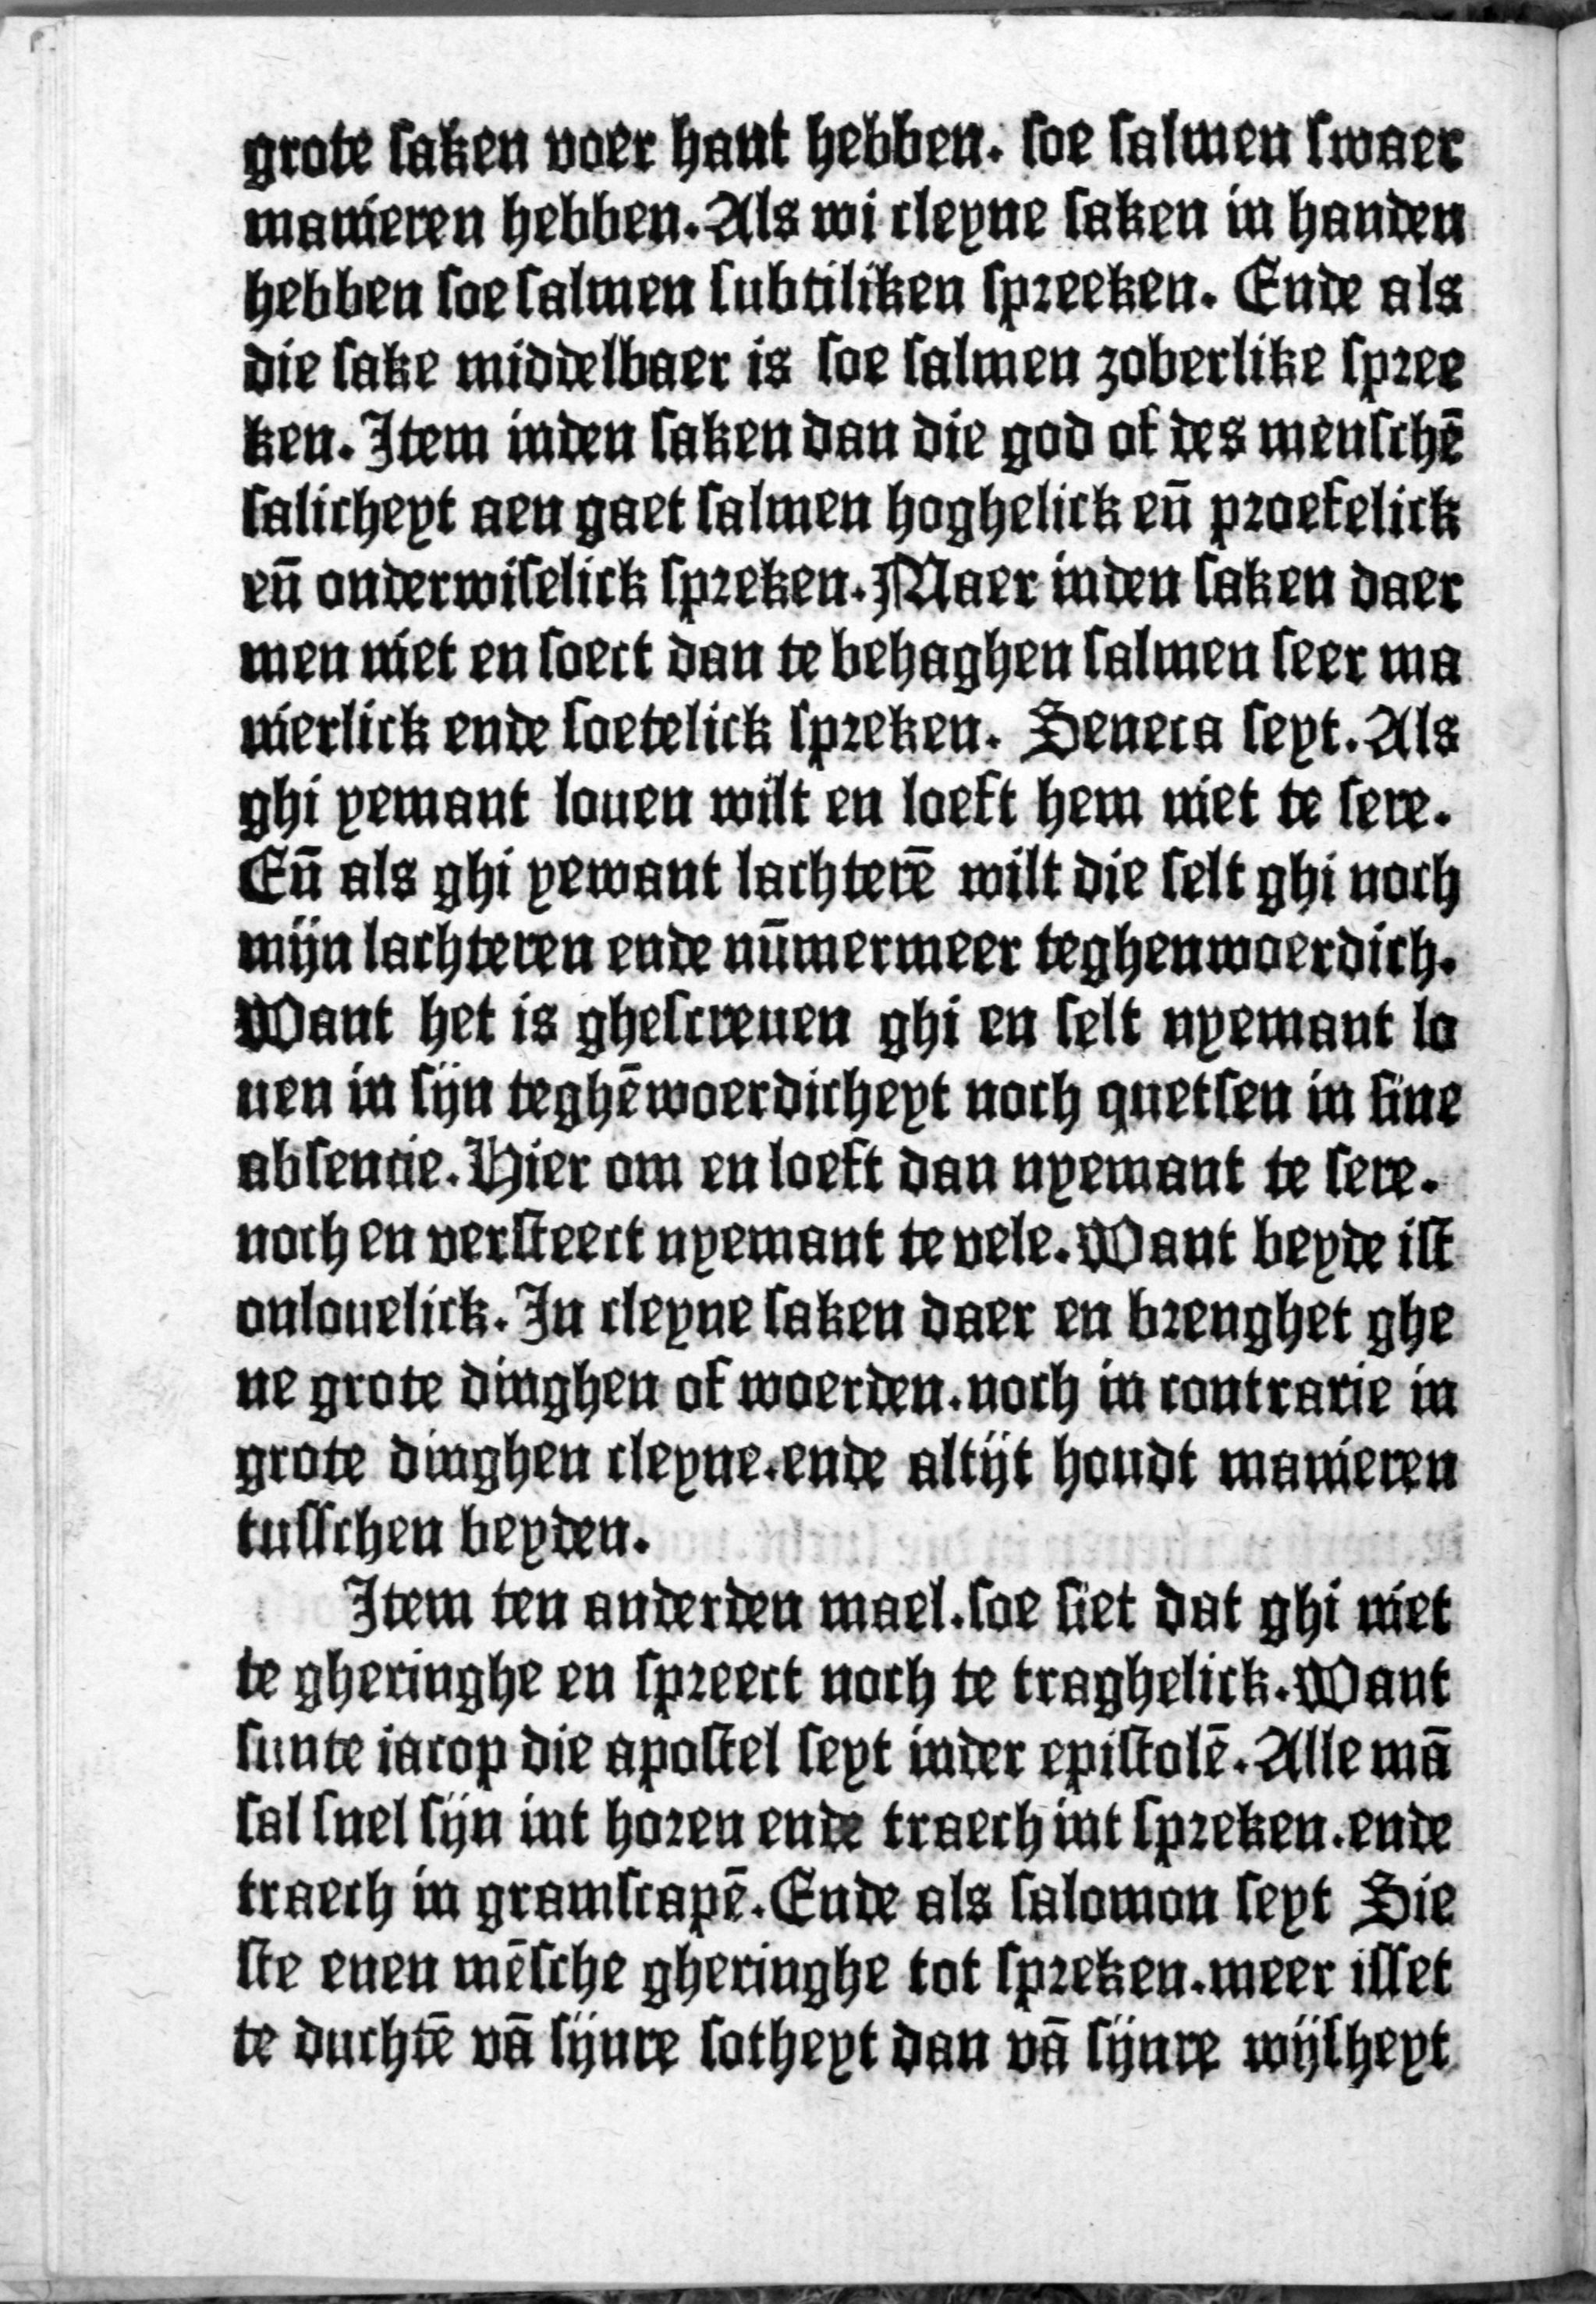 grote saken voer hant hebben. soe salmen swaer
manieren hebben. Als wi cleyne saken in handen
hebben soe salmen subtiliken spreeken. Ende als
die sake middelbaer is soe salmen zoberlike spree
ken. Item inden saken dan die god of des menschē
salicheyt aen gaet salmen hoghelick en̄ proefelick
en̄ onderwiselick spreken. Maer inden saken daer
men niet en soect dan te behaghen salmen seer ma
nierlick ende soetelick spreken. Seneca seyt. Als
ghi yemant louen wilt en loeft hem niet te sere.
En̄ als ghi yewant lachterē wilt die selt ghi noch
mijn lachteren ende nūmermeer teghenwoerdich.
Want het is ghescreuen ghi en selt nyemant lo
uen in sijn teghēwoerdicheyt noch quetsen in sine
absencie. Hier om en loeft dan nyemant te sere.
noch en versteect nyemant te vele. Want beyde ist
onlouelick. In cleyne saken daer en brenghet ghe
ne grote dinghen of woerden. noch in contrarie in
grote dinghen cleyne. ende altijt houdt manieren
tusschen beyden.
Item ten anderden mael. soe siet dat ghi niet
te gheringhe en spreect noch te traghelick. Want
sunte iacop die apostel seyt inder epistolē. Alle mā
sal snel sijn int horen ende traech int spreken. ende
traech in gramscapē. Ende als salomon seyt Sie
ste enen mēsche gheringhe tot spreken. meer isset
te duchtē vā sijnre sotheyt dan vā sijnre wijsheyt